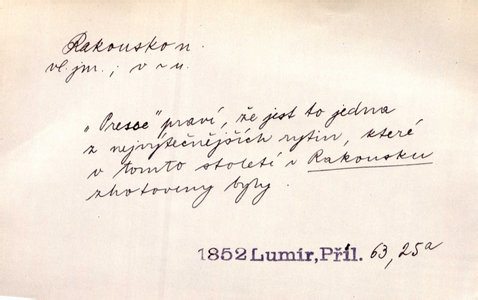 Rakousko n.
vl. jm.; v r u.
„Presse" praví, že jest to jedna
z nejvýtečnějších rytin, které
v tomto století v Rakousku
zhotoveny byly.
1852 Lumír, Příl. 63, 25a